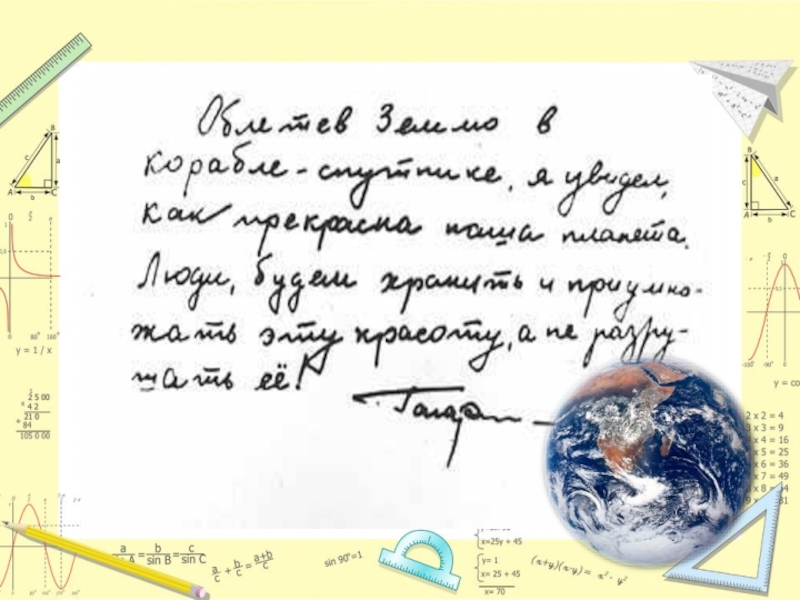 Облетев Землю в
корабле-спутнике, я увидел,
как прекрасна наша планета.
Люди, будем хранить и приумно-
жать эту красоту, а не разру-
шать её!
Гагарин
B
c
a
A
b
C
B
c
a
A
b
C
y = 1 / x
80° 160°
2 5 00
x 4 2
21 0
+ 84
105 0 00
2 x 2 = 4
3 x 3 = 9
x 4 = 16
x 5 = 25
x 6 = 36
x 7 = 49
x 8 =
y = co
b/sin B = c/sin C
a/c + b/c = a+b/c
sin 90°=1
x=25y + 45
y= 1
x= 25 + 45
x= 70
(x+y)(x-y) = x² - y²